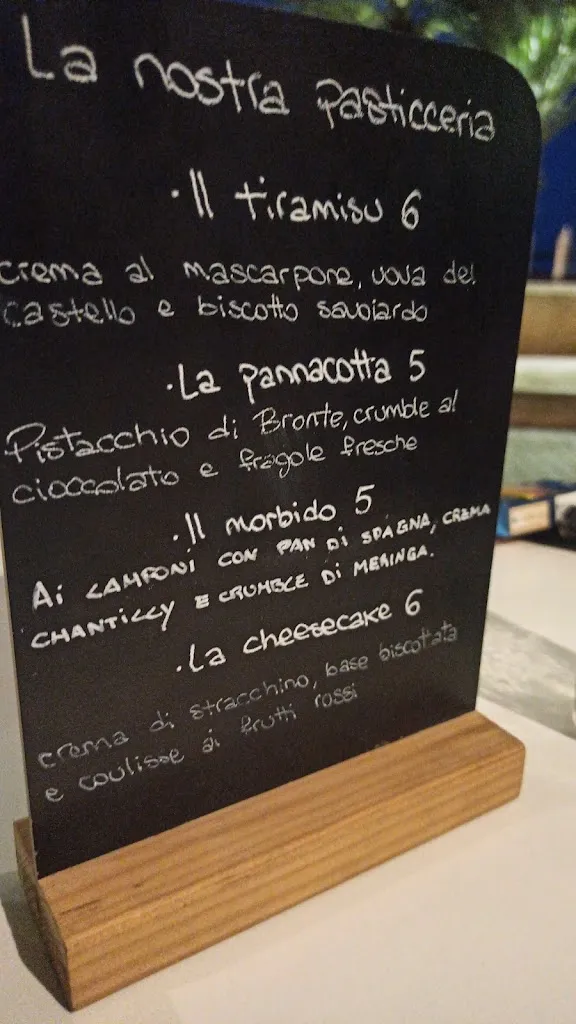 La nostra pasticceria
· Il tiramisu 6
crema al mascarpone, uova del
castello e biscotto savoiardo
· La pannacotta 5
Pistacchio di Bronte, crumble al
cioccolato e fragole fresche
· Il morbido 5
Ai LAMPONI CON PAN DI SPAGNA, CREMA
CHANTILLY E CRUMBLE DI MERINGA.
· La cheesecake 6
crema di stracchino, base biscottata
e coulisse ai frutti rossi